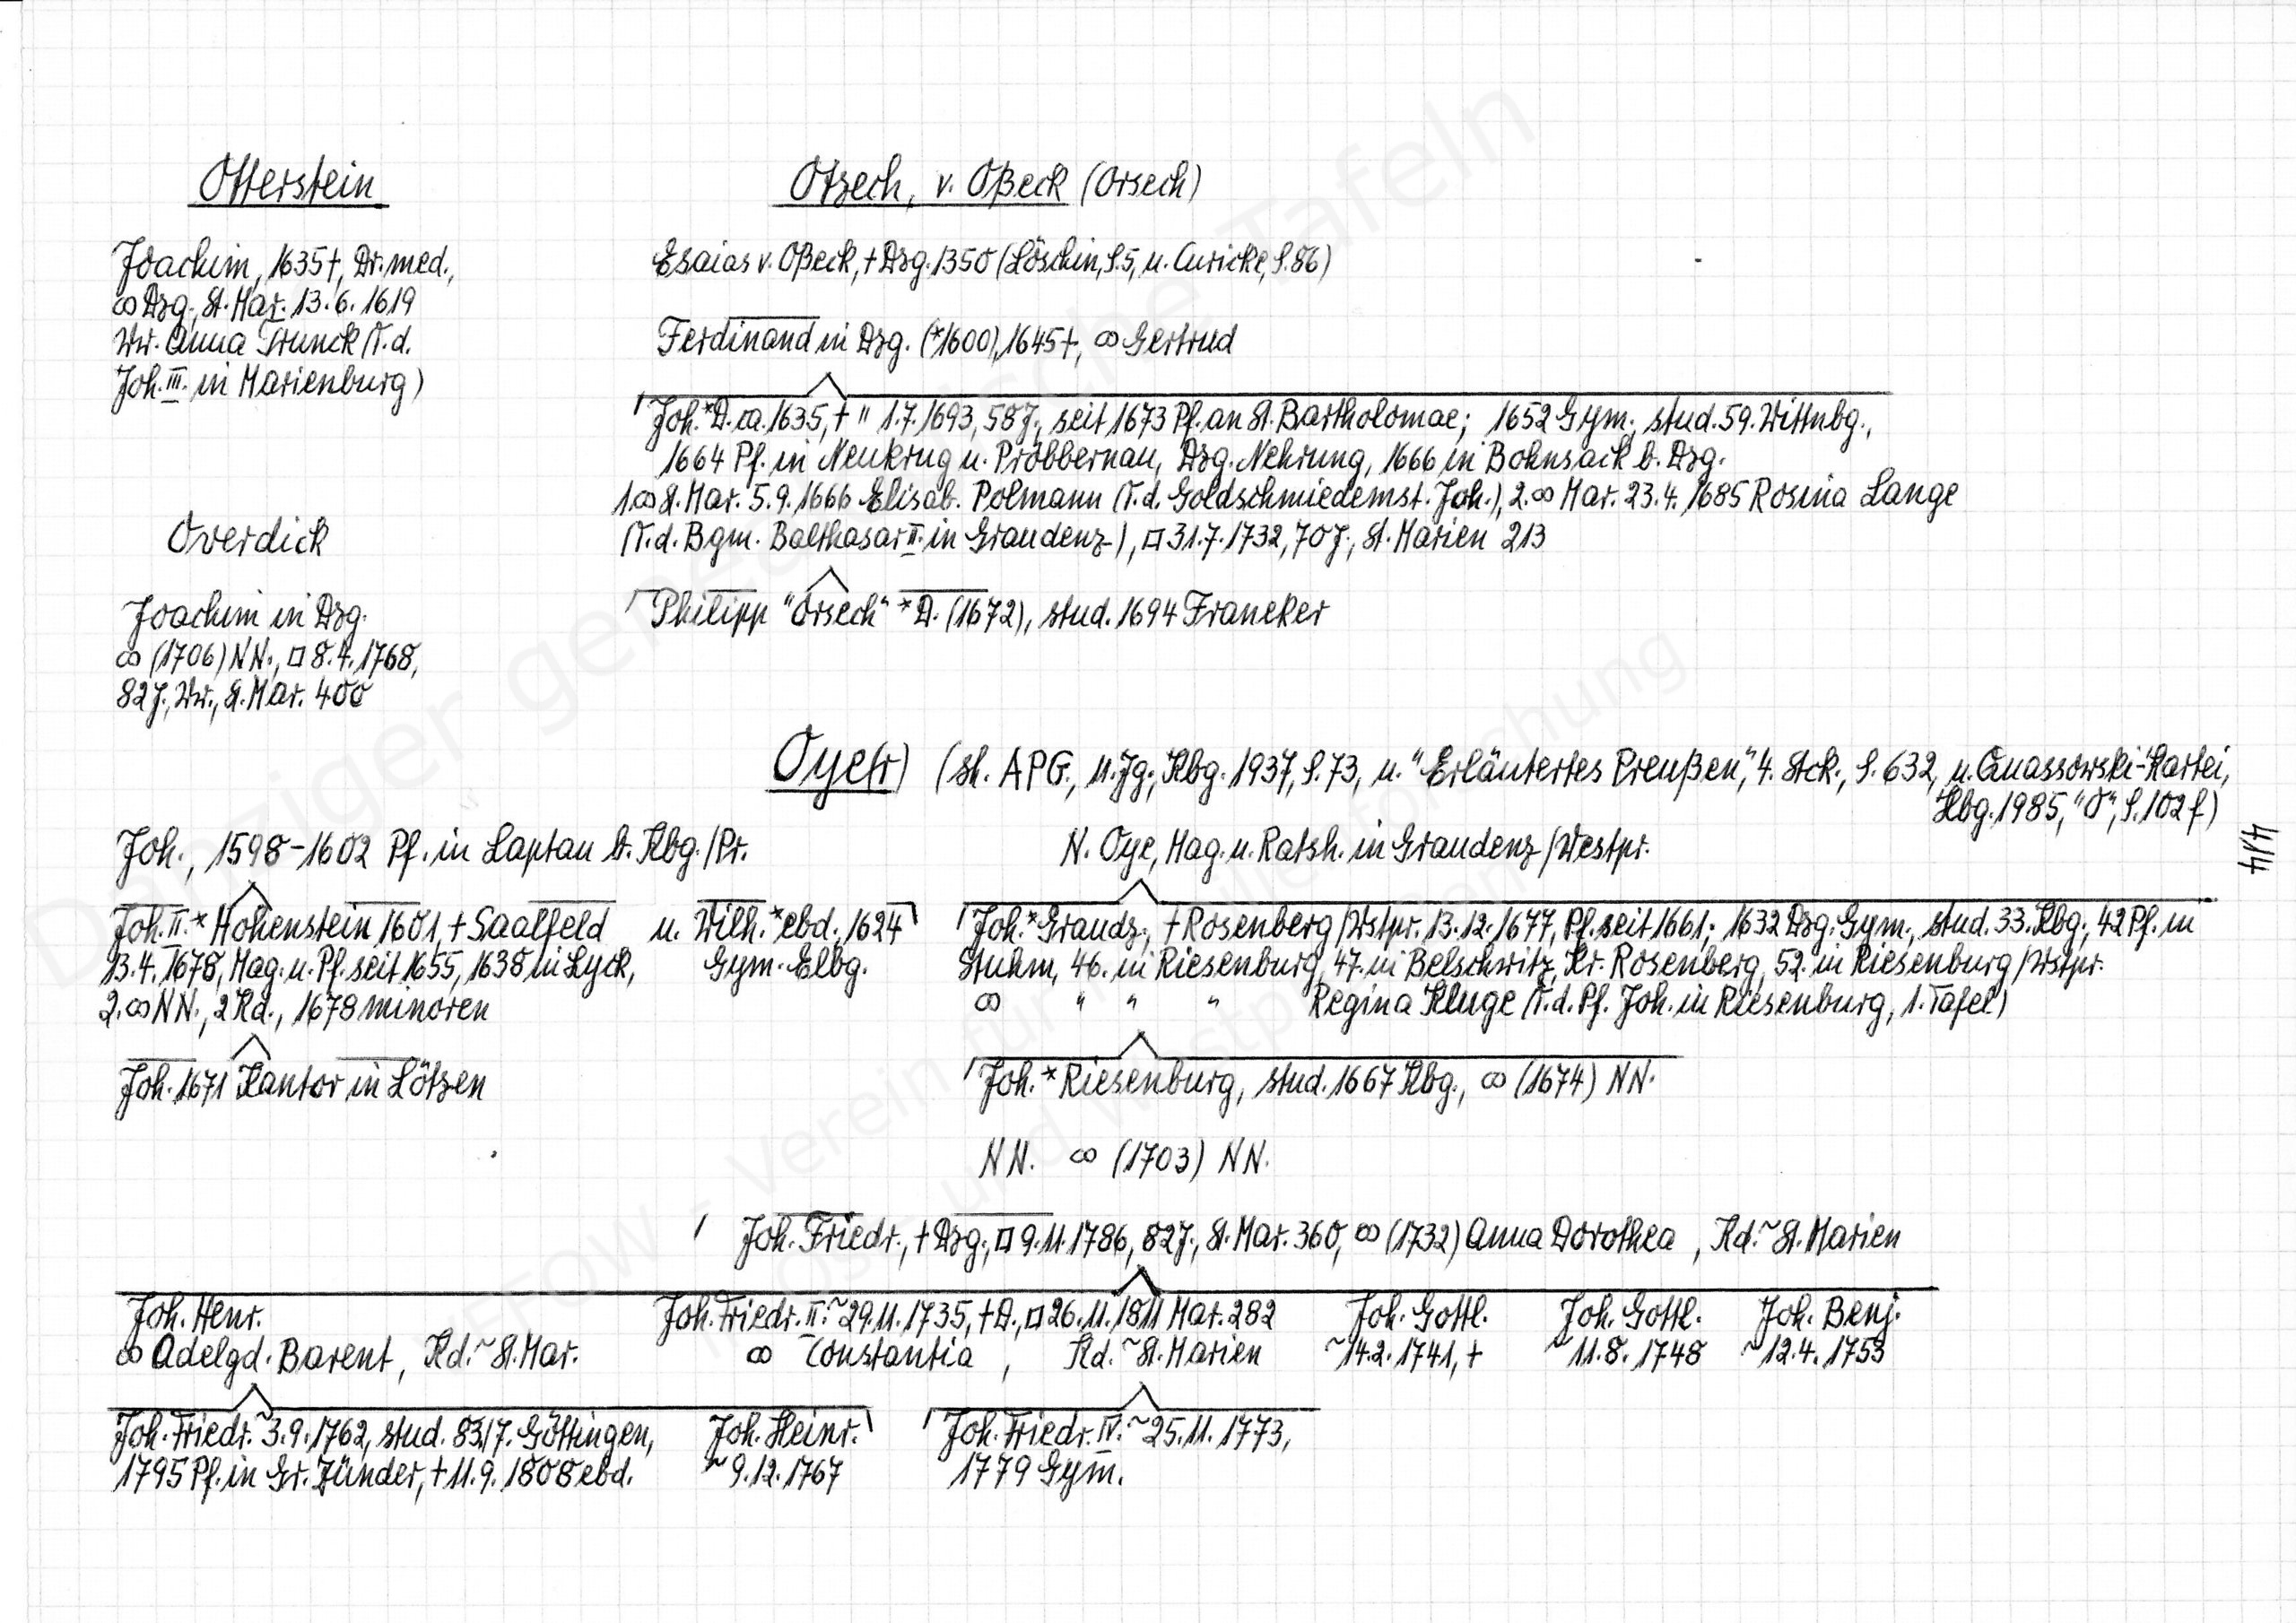 Otterstein
Joachim, 1635†, Dr. med.,
∞ Dzg., St. Mar. 13.6.1619
Wr. Anna Trunck (T.d.
Joh. III. in Marienburg)
Overdick
Joachim in Dzg.
∞ (1706) NN., □ 8.4.1768,
82 J., Wr., St. Mar. 400
Otzech, v. Oßeck (Orsech)
Esaias v. Oßeck, † Dzg. 1350 (Löschin, S. 5, u. Curicke, S. 86)
Ferdinand in Dzg. (*1600), 1645†, ∞ Gertrud
Joh. *D. ca. 1635, † " 1.7.1693, 58 J., seit 1673 Pf. an St. Bartholomae; 1652 Gym., stud. 59. Wittnbg.,
1664 Pf. in Neukrug u. Pröbbernau, Dzg. Nehrung, 1666 in Bohnsack b. Dzg.
1.∞ St. Mar. 5.9.1666 Elisab. Polmann (T.d. Goldschmiedemst. Joh.), 2.∞ Mar. 23.4.1685 Rosina Lange
(T.d. Bgm. Balthasar II. in Graudenz), □ 31.7.1732, 70 J., St. Marien 213
Philipp "Orsech" *D. (1672), stud. 1694 Franeker
Oye(r) (sh. APG., 11. Jg., Kbg. 1937, S. 73, u. "Erläutertes Preußen", 4. Stck., S. 632, u. Quassowski-Kartei,
Kbg. 1985, "O", S. 102 f)
414
Joh., 1598-1602 Pf. in Laptau b. Kbg./Pr.
N. Oye, Mag. u. Ratsh. in Graudenz/Westpr.
Joh. II. * Hohenstein 1601, † Saalfeld u. Wilh. * ebd., 1624
13.4.1678, Mag. u. Pf. seit 1655, 1638 in Lyck, Gym. Elbg.
2.∞ NN., 2 Kd., 1678 minoren
Joh. 1671 Kantor in Lötzen
Joh. * Graudz., † Rosenberg/Wstpr. 13.12.1677, Pf. seit 1661; 1632 Dzg. Gym., stud. 33. Kbg., 42 Pf. in
Stuhm, 46. in Riesenburg, 47. in Belschwitz, Kr. Rosenberg, 52. in Riesenburg/Wstpr.
∞ " " " Regina Kluge (T.d. Pf. Joh. in Riesenburg, 1. Tafel)
Joh. * Riesenburg, stud. 1667 Kbg., ∞ (1674) NN.
NN. ∞ (1703) NN.
Joh. Friedr., † Dzg., □ 9.11.1786, 82 J., St. Mar. 360, ∞ (1732) Anna Dorothea , Kd. ~ St. Marien
Joh. Henr. Joh. Friedr. II. ~ 29.11.1735, † D., □ 26.11.1811 Mar. 282 Joh. Gottl. Joh. Gottl. Joh. Benj.
∞ Adelgd. Barent, Kd. ~ St. Mar. ∞ Constantia , Kd. ~ St. Marien ~ 14.2.1741, † ~ 11.8.1748 ~ 12.4.1753
Joh. Friedr. ~ 3.9.1762, stud. 83.17. Göttingen, Joh. Heinr. Joh. Friedr. IV. ~ 25.11.1773,
1795 Pf. in Gr. Zünder, † 11.9.1808 ebd. ~ 9.12.1767 1779 Gym.
Danziger genealogische Tafeln
VFFOW - Verein für Familienforschung
in Ost- und Westpreußen